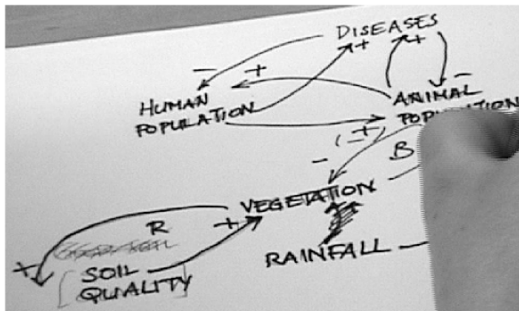 DISEASES
HUMAN
POPULATION
ANIMAL
POPULATION
B
VEGETATION
R
RAINFALL
SOIL
QUALITY